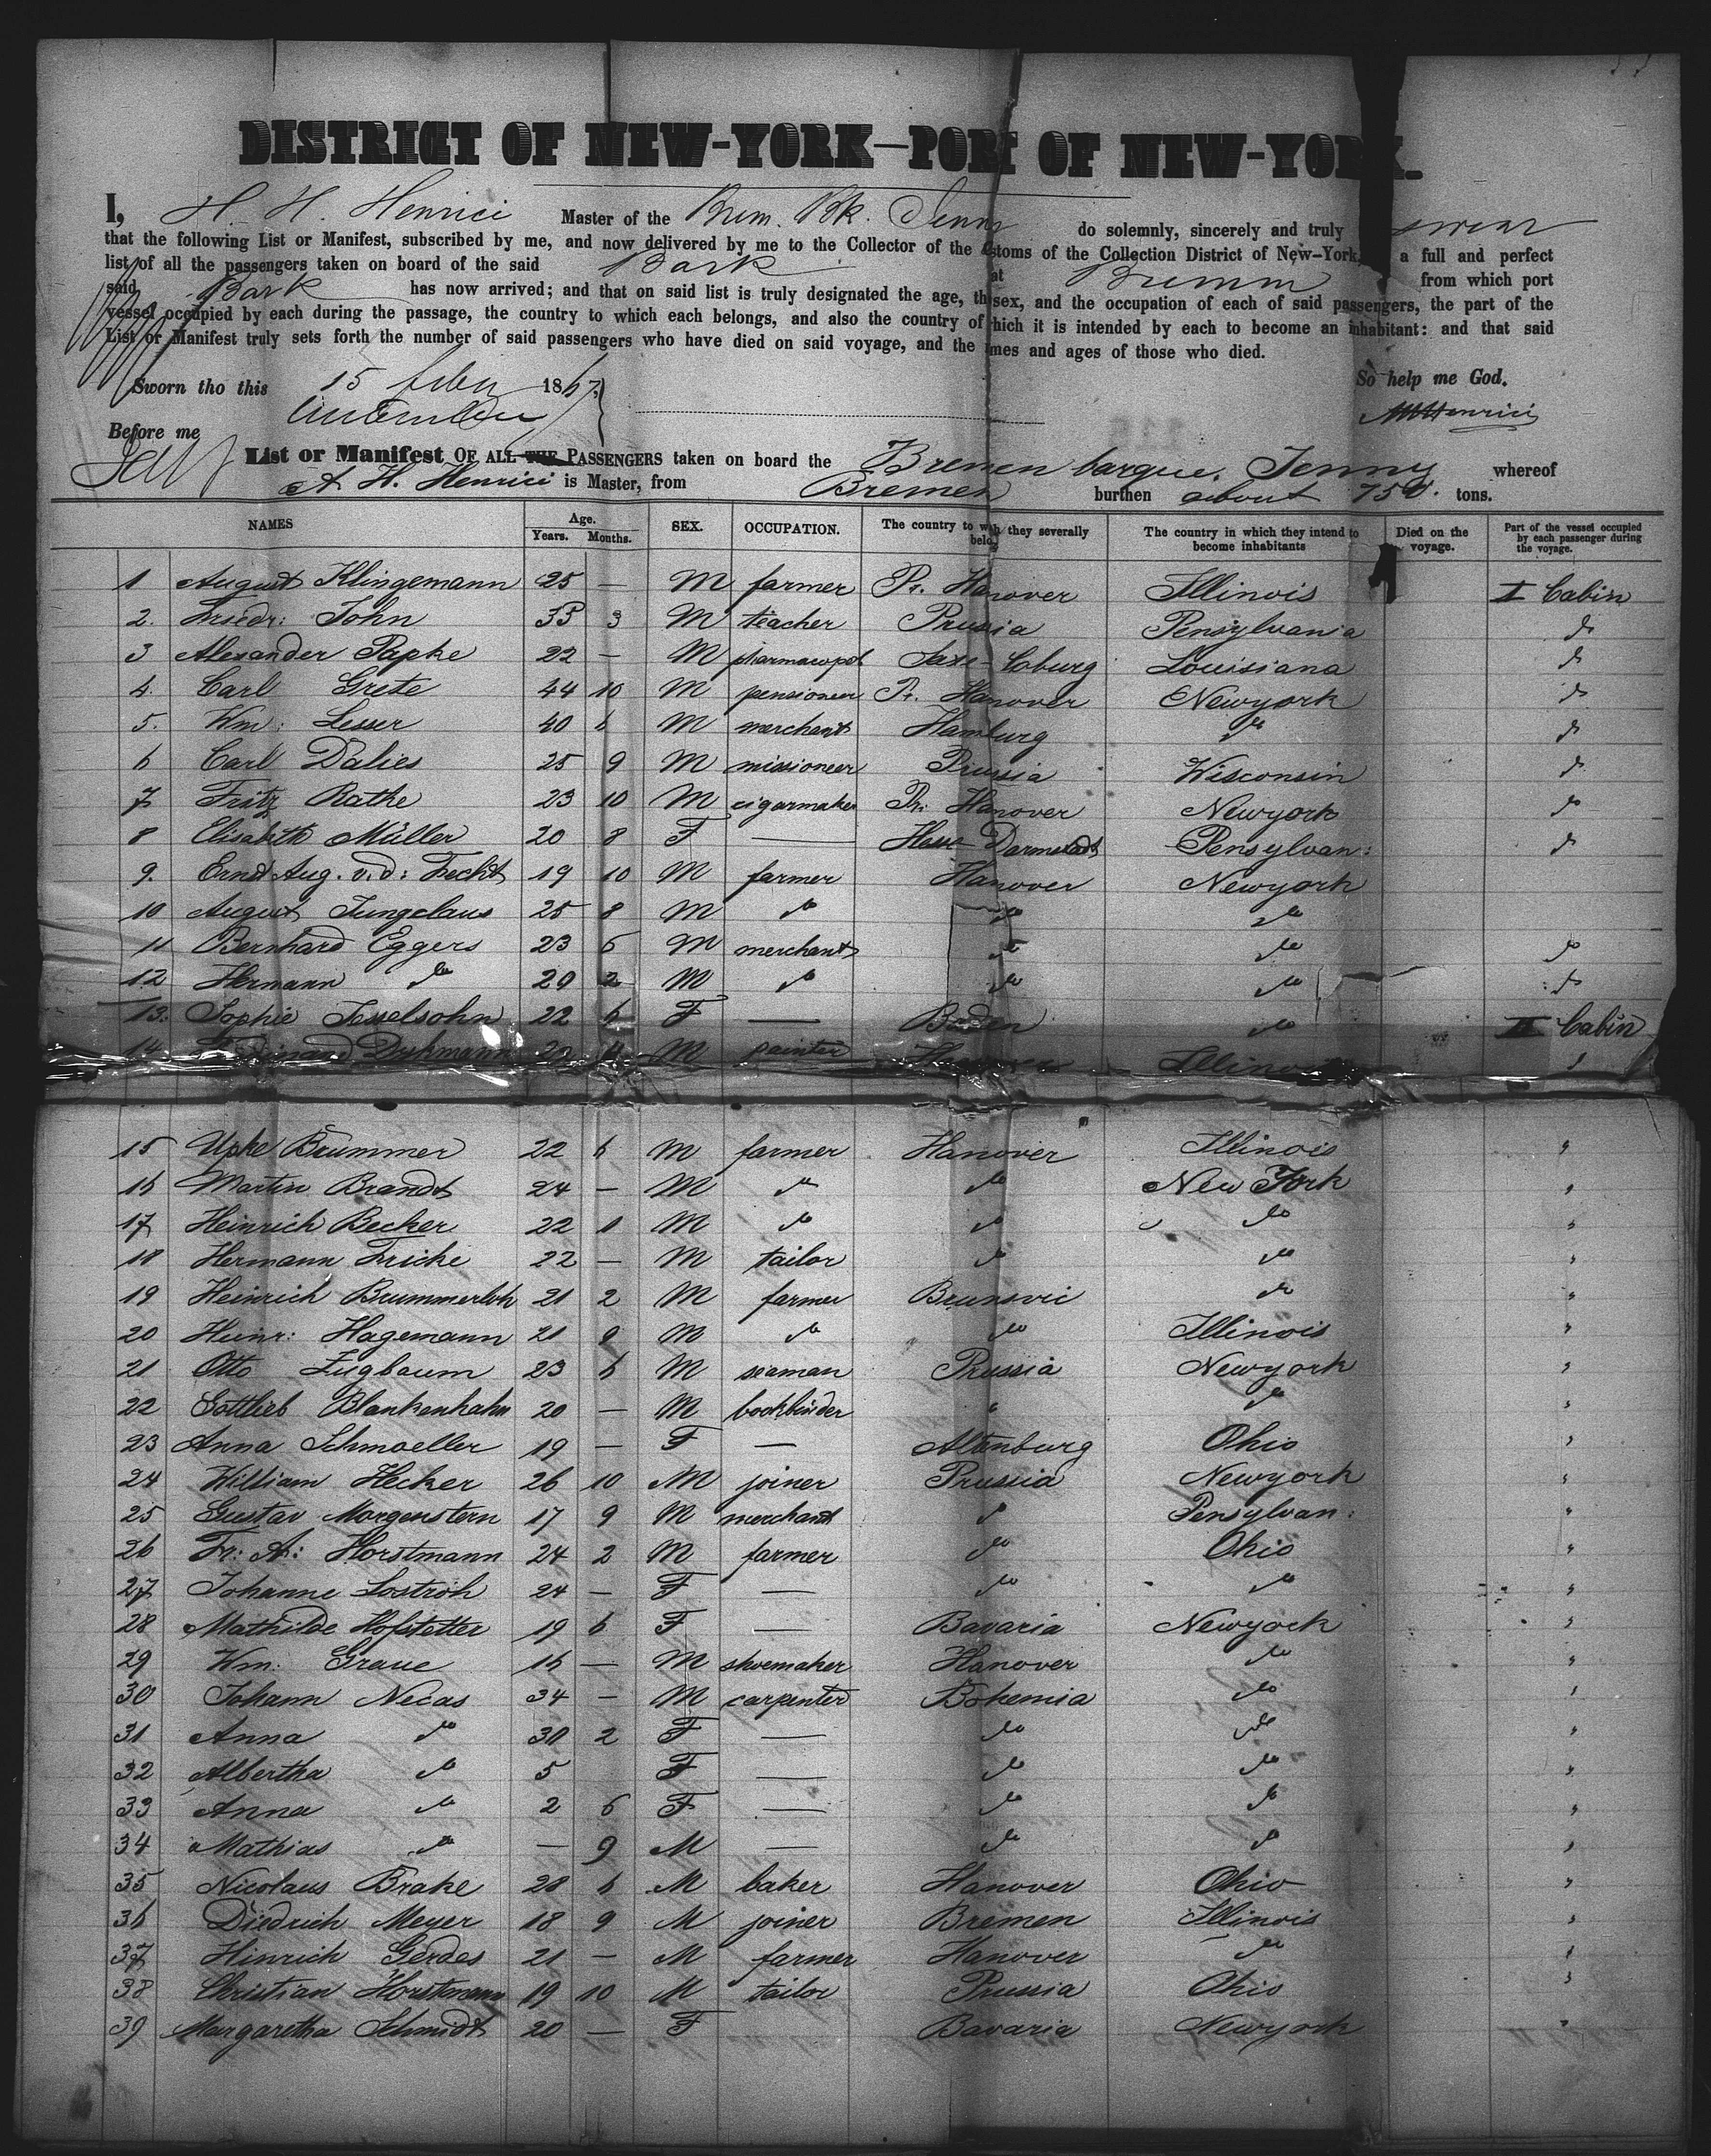 DISTRICT OF NEW-YORK—PORT OF NEW-YORK.
I, H. H. Henrici Master of the Brem. Bk. Jenny do solemnly, sincerely and truly swear
that the following List or Manifest, subscribed by me, and now delivered by me to the Collector of the Customs of the Collection District of New-York, a full and perfect
list of all the passengers taken on board of the said Bark at Bremen from which port
said Bark has now arrived; and that on said list is truly designated the age, the sex, and the occupation of each of said passengers, the part of the
vessel occupied by each during the passage, the country to which each belongs, and also the country of which it is intended by each to become an inhabitant: and that said
List or Manifest truly sets forth the number of said passengers who have died on said voyage, and the names and ages of those who died.
Sworn tho this 15 1867 So help me God.
Before me HHHenrici
List or Manifest OF ALL THE PASSENGERS taken on board the Bremen barque, Jenny whereof
A H. Henrici is Master, from Bremen burthen about 750. tons.
NAMES Age. Years. Months. SEX. OCCUPATION. The country to wch they severally belong The country in which they intend to become inhabitants Died on the voyage. Part of the vessel occupied by each passenger during the voyage.
1 August Klingemann 25 — M farmer Pr. Hanover Illinois II Cabin
2. Friedr: John 35 3 M teacher Prussia Pensylvania do
3 Alexander Papke 22 — M pharmacopol Saxe-Coburg Louisiana do
4. Carl Grete 44 10 M pensioneer Pr. Hanover Newyork do
5. Wm: Lesser 40 6 M merchant Hamburg do do
6 Carl Dalies 25 9 M missioneer Prussia Wisconsin do
7 Fritz Rathe 23 10 M cigarmaker Pr. Hanover Newyork do
8 Elisabeth Müller 20 8 F — Hesse Darmstadt Pensylvan: do
9. Ernst Aug. v.d: Fecht 19 10 M farmer Hanover Newyork
10 August Jungclaus 25 8 M do do do
11 Bernhard Eggers 23 5 M merchant do do do
12 Hermann do 20 2 M do do do do
13. Sophie Jesselsohn 22 6 F — Baden do II Cabin
14. Ferdinand Dyckmann M painter Hanover Illinois "
15 Upke Brummer 22 6 M farmer Hanover Illinois "
16 Martin Brandt 24 — M do do New York "
17 Heinrich Becker 22 1 M do do do "
18 Hermann Fricke 22 — M tailor do do "
19 Heinrich Brummerloh 21 2 M farmer Brunsvic do "
20 Heinr: Hagemann 21 9 M do do Illinois "
21 Otto Zugbaum 23 6 M seaman Prussia Newyork "
22 Gottlieb Blankenhahn 20 — M bookbinder " do "
23 Anna Schmoeller 19 — F — Altenburg Ohio "
24 William Hecker 26 10 M joiner Prussia Newyork "
25 Gustav Morgenstern 17 9 M merchant do Pensylvan: "
26 Fr: A: Horstmann 24 2 M farmer do Ohio "
27 Johanne Lostroh 24 — F — do do "
28 Mathilde Hofstetter 19 6 F — Bavaria Newyork "
29 Wm: Graue 16 — M shoemaker Hanover do "
30 Johann Necas 34 — M carpenter Bohemia do "
31 Anna do 30 2 F — do do "
32 Albertha do 5 F — do do "
33 Anna do 2 6 F — do do "
34 Mathias do — 9 M — do do "
35 Nicolaus Brake 28 6 M baker Hanover Ohio "
36 Diedrich Meyer 18 9 M joiner Bremen Illinois "
37 Hinrich Gerdes 21 — M farmer Hanover do "
38 Christian Horstmann 19 10 M tailor Prussia Ohio "
39 Margaretha Schmidt 20 — F Bavaria Newyork "